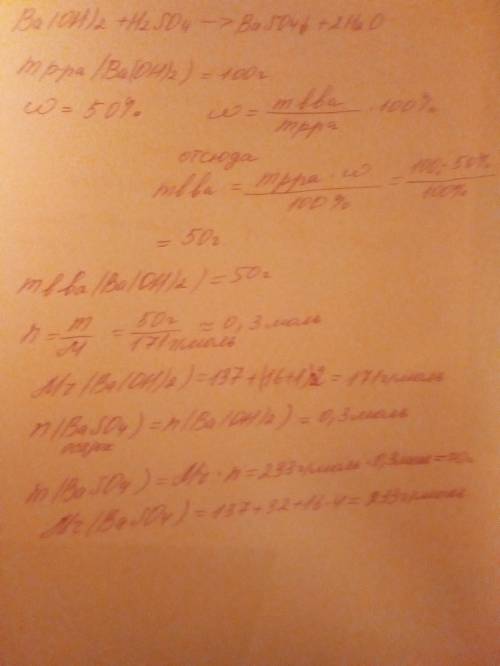 Ba(OH)2 + H2SO4 → BaSO4↓ + 2H2O
mрра(Ba(OH)2) = 100г
ω = 50% ω = mвва / mрра · 100%
отсюда
mвва = mрра · ω / 100% = 100г · 50% / 100%
= 50г
mвва(Ba(OH)2) = 50г
n = m/M = 50г / 171г/моль ≈ 0,3 моль
Mr(Ba(OH)2) = 137 + (16+1)2 = 171г/моль
n(BaSO4) = n(Ba(OH)2) = 0,3 моль
осадок
m(BaSO4) = Mr · n = 233г/моль · 0,3 моль =
Mr(BaSO4) = 137 + 32 + 16 · 4 = 233г/моль